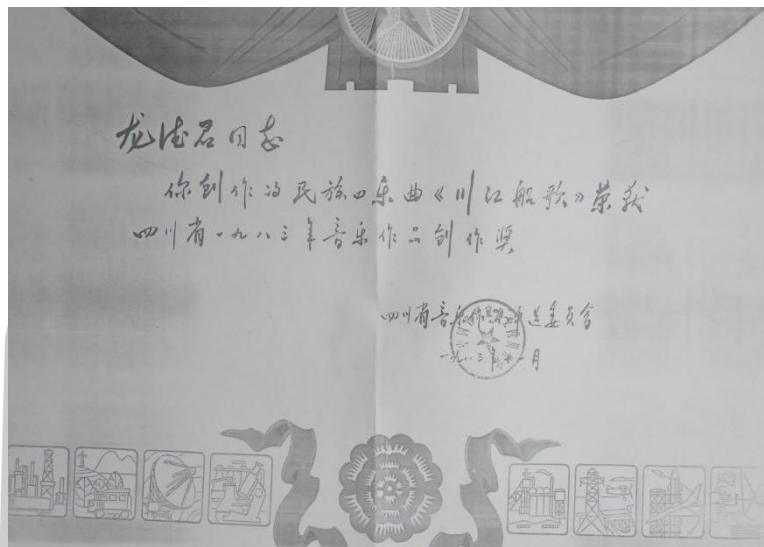 龙德君同志
你创作的民族四乐曲《川江船歌》荣获
四川省一九八三年音乐作品创作奖
四川省音乐作品 评选委员会
一九八三年 月